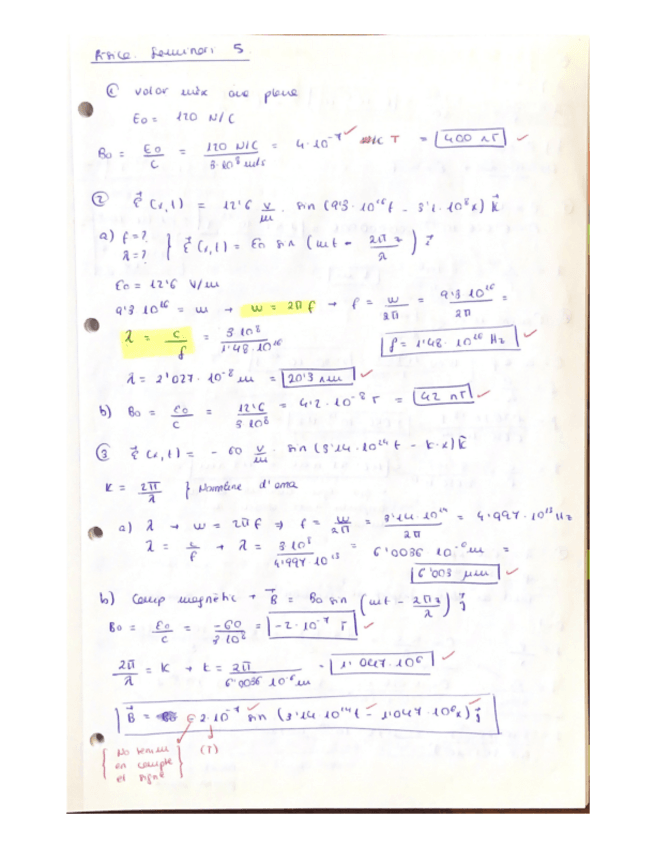 Física. Seminari 5
① valor màx ona plana
E₀ = 120 N/C
B₀ = E₀/c = 120 N/C / 3·10⁸ m/s = 4·10⁻⁷ N/C T = 400 nT
② ℰ⃗ (x,t) = 12'6 V/m · sin (9'3·10¹⁶t - 3'1·10⁸x) k⃗
a) f=? λ=? } ℰ⃗ (x,t) = E₀ sin (ωt - 2πz/λ) i⃗
E₀ = 12'6 V/m
9'3 10¹⁶ = ω → ω = 2πf → f = ω/2π = 9'3 10¹⁶/2π =
λ = c/f = 3 10⁸/1'48·10¹⁶
f = 1'48·10¹⁶ Hz
λ = 2'027·10⁻⁸ m = 20'3 nm
b) B₀ = ε₀/c = 12'6/3 10⁸ = 4'2·10⁻⁸ T = 42 nT
③ ℰ⃗ (x,t) = - 60 V/m · sin (3'14·10¹⁴t - k·x) k⃗
K = 2π/λ } Nombre d'ona
a) λ → ω = 2πf ⇒ f = ω/2π = 3'14·10¹⁴/2π = 4'997·10¹³ Hz
λ = c/f → λ = 3 10⁸/4'997 10¹³ = 6'0036 10⁻⁶ m =
6'003 μm
b) Comp magnètic → B⃗ = B₀ sin (ωt - 2πz/λ) j⃗
B₀ = E₀/c = -60/3 10⁸ = -2·10⁻⁷ T
2π/λ = K → k = 2π/6'0036 10⁻⁶ m = 1'047·10⁶
B⃗ = 2·10⁻⁷ sin (3'14 10¹⁴t - 1'047·10⁶x) j⃗
No tenim en compte el signe
(T)